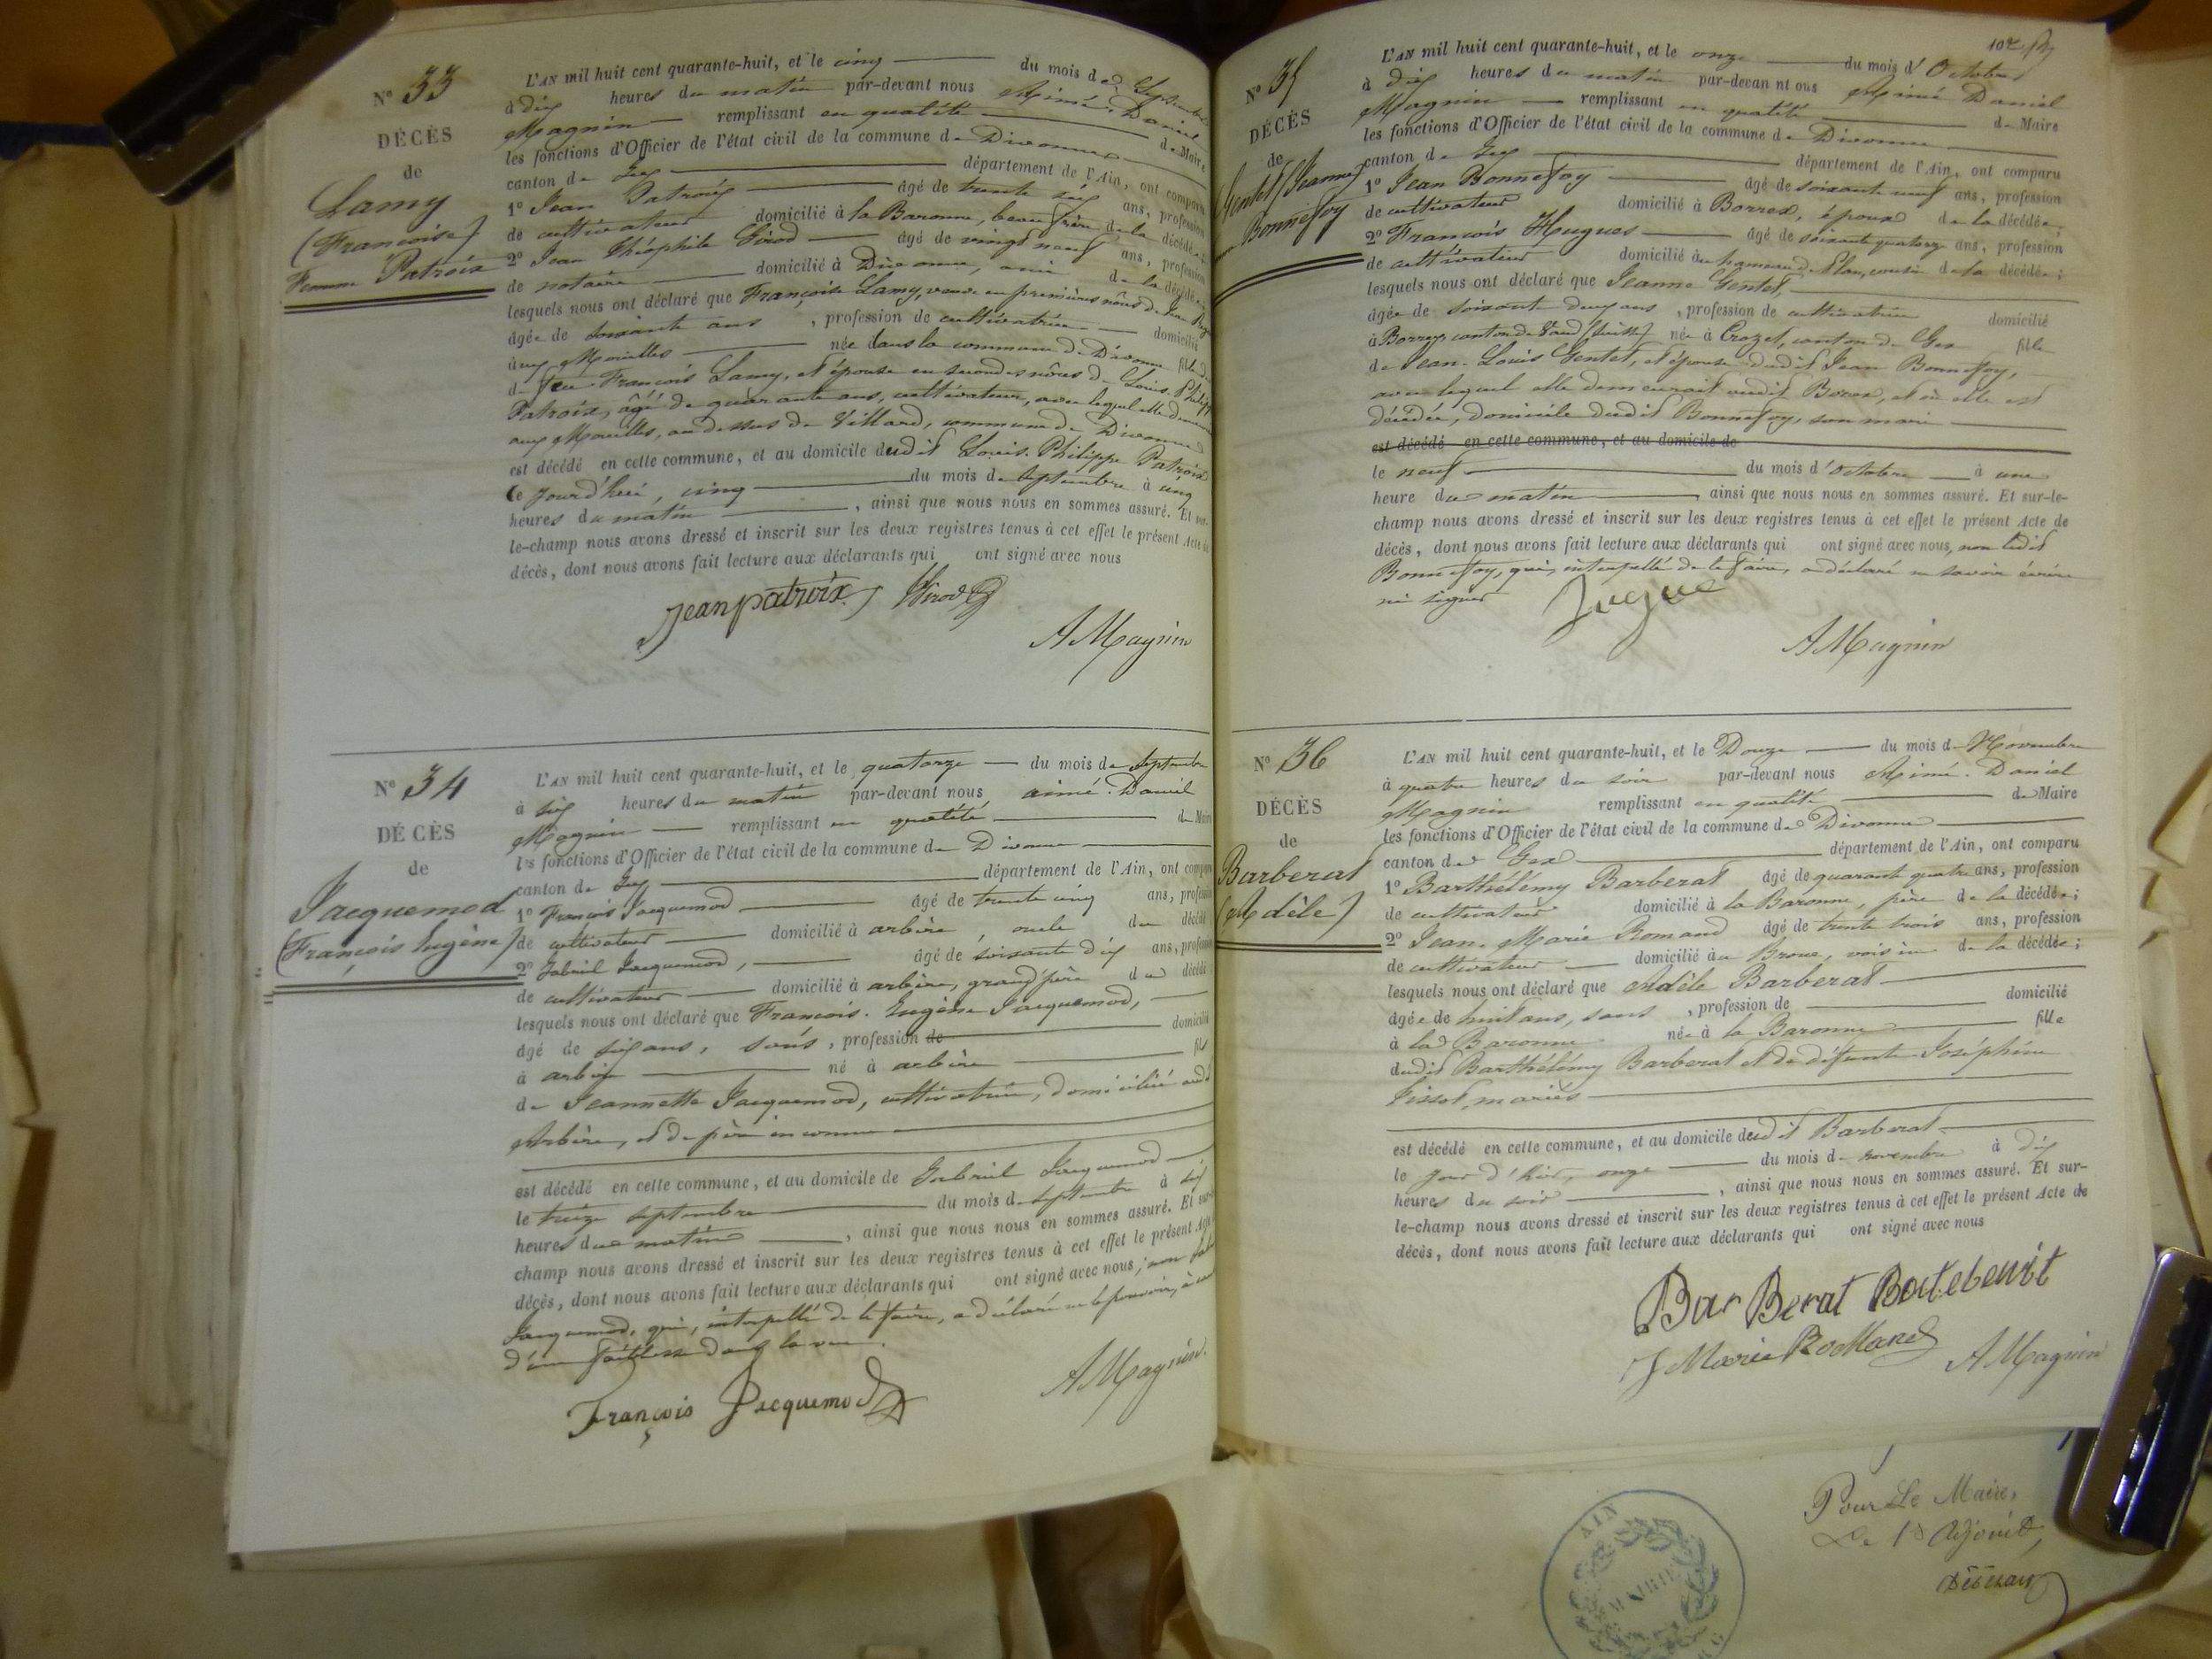 N° 33
DÉCÈS
de
Lamy
(Françoise)
Femme Patroix
L'AN mil huit cent quarante-huit, et le cinq du mois de Septembre
à dix heures du matin par-devant nous Aimé-Daniel
Magnin remplissant en qualité de Maire
les fonctions d'Officier de l'état civil de la commune de Divonne
canton de Gex département de l'Ain, ont comparu
1° Jean Patroix âgé de trente six ans, profession
de cultivateur domicilié à la Baronne, beau frère de la décédée
2° Jean Théophile Girod âgé de vingt neuf ans, profession
de notaire domicilié à Divonne, ami de la décédée
lesquels nous ont déclaré que Françoise Lamy, veuve en premières nôces de
âgée de soixante ans, profession de cultivatrice domicilié
aux Mouilles née dans la commune de Divonne fille
de feu François Lamy, et épouse en secondes nôces de Louis-Philippe
Patroix, âgé de quarante ans, cultivateur, avec lequel elle
aux Mouilles, au dessus de Villard, commune de Divonne
est décédé en cette commune, et au domicile dudit Louis-Philippe Patroix
ce jourd'hui, cinq du mois de septembre à cinq
heures du matin, ainsi que nous nous en sommes assuré. Et sur-
le-champ nous avons dressé et inscrit sur les deux registres tenus à cet effet le présent Acte de
décès, dont nous avons fait lecture aux déclarants qui ont signé avec nous
Jean patroix Girod
A Magnin
N° 34
DÉCÈS
de
Jacquemod
(François Eugène)
L'AN mil huit cent quarante-huit, et le quatorze du mois de septembre
à six heures du matin par-devant nous aimé-Daniel
Magnin remplissant en qualité de Maire
les fonctions d'Officier de l'état civil de la commune de Divonne
canton de Gex département de l'Ain, ont comparu
1° François Jacquemod âgé de trente cinq ans, profession
de cultivateur domicilié à arbère, oncle du décédé
2° Gabriel Jacquemod, âgé de soixante dix ans, profession
de cultivateur domicilié à arbère, grand'père du décédé
lesquels nous ont déclaré que François-Eugène Jacquemod,
âgé de six ans, sans, profession de domicilié
à arbère né à arbère fils
de Jeannette Jacquemod, cultivatrice, domiciliée audit
Arbère, et de père inconnu
est décédé en cette commune, et au domicile de Gabriel Jacquemod
le treize septembre du mois de septembre à six
heures du matin, ainsi que nous nous en sommes assuré. Et sur-le-
champ nous avons dressé et inscrit sur les deux registres tenus à cet effet le présent Acte
décès, dont nous avons fait lecture aux déclarants qui ont signé avec nous, non
Jacquemod, qui, interpellé de le faire, a déclaré ne le pouvoir, à cause
d'une faiblesse dans la vue.
François Jacquemod
A Magnin
N° 35
DÉCÈS
de
Gentet (Jeanne)
Bonnefoy
L'AN mil huit cent quarante-huit, et le onze du mois d'Octobre
à dix heures du matin par-devant nous Aimé Daniel
Magnin remplissant en qualité de Maire
les fonctions d'Officier de l'état civil de la commune de Divonne
canton de Gex département de l'Ain, ont comparu
1° Jean Bonnefoy âgé de soixante neuf ans, profession
de cultivateur domicilié à Borrex, époux de la décédée;
2° François Hugues âgé de soixante quatorze ans, profession
de cultivateur domicilié au hameau de Plan, cousin de la décédée;
lesquels nous ont déclaré que Jeanne Gentet,
âgée de soixante deux ans, profession de cultivatrice domicilié
à Borrex canton de Vaud (Suisse) née à Crozet, canton de Gex fille
de Jean-Louis Gentet, et épouse dudit Jean Bonnefoy,
avec lequel elle demeurait audit Borex, et où elle est
décédée, domicile dudit Bonnefoy, son mari
est décédé en cette commune, et au domicile de
le neuf du mois d'Octobre à une
heure du matin, ainsi que nous nous en sommes assuré. Et sur-le-
champ nous avons dressé et inscrit sur les deux registres tenus à cet effet le présent Acte de
décès, dont nous avons fait lecture aux déclarants qui ont signé avec nous, non ledit
Bonnefoy, qui, interpellé de le faire, a déclaré ne savoir écrire
ni signer
A Magnin
N° 36
DÉCÈS
de
Barberat
(Adèle)
L'AN mil huit cent quarante-huit, et le Douze du mois de Novembre
à quatre heures du soir par-devant nous Aimé-Daniel
Magnin remplissant en qualité de Maire
les fonctions d'Officier de l'état civil de la commune de Divonne
canton de Gex département de l'Ain, ont comparu
1° Barthélémy Barberat âgé de quarante quatre ans, profession
de cultivateur domicilié à la Baronne, père de la décédée;
2° Jean-Marie Romand âgé de trente trois ans, profession
de cultivateur domicilié au Broue, voisin de la décédée;
lesquels nous ont déclaré que Adèle Barberat
âgée de huit ans, sans, profession de domicilié
à la Baronne née à la Baronne fille
dudit Barthélémy Barberat et de défunte Joséphine
Tissot, mariés
est décédé en cette commune, et au domicile dudit Barberat
le jour d'hier, onze du mois de novembre à dix
heures du soir, ainsi que nous nous en sommes assuré. Et sur-
le-champ nous avons dressé et inscrit sur les deux registres tenus à cet effet le présent Acte de
décès, dont nous avons fait lecture aux déclarants qui ont signé avec nous
BarBerat
J Marie Romand A Magnin
Pour Le Maire,
Le 1er Adjoint,
AIN
MAIRIE